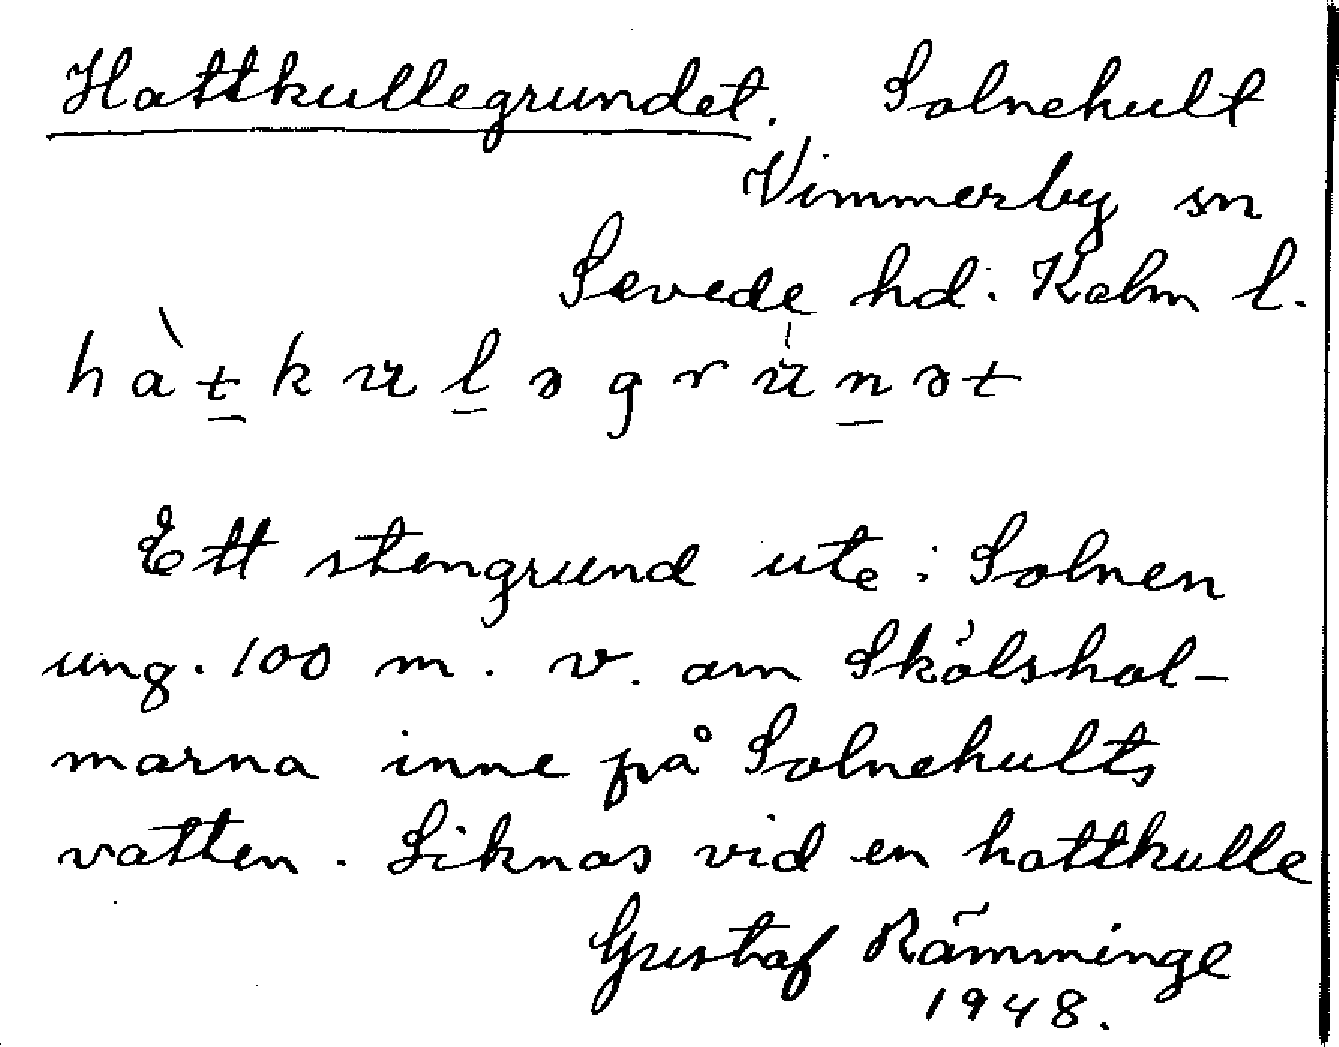 Hattkullegrundet. Solnehult
Vimmerby sn
Sevede hd. Kalm l.
hàt̠kuḻəgru̍n̠ət
Ett stengrund ute i Solnen
ung. 100 m. v. om Skälshol-
marna inne på Solnehults
vatten. Liknas vid en hattkulle
Gustaf Rämminge
1948.